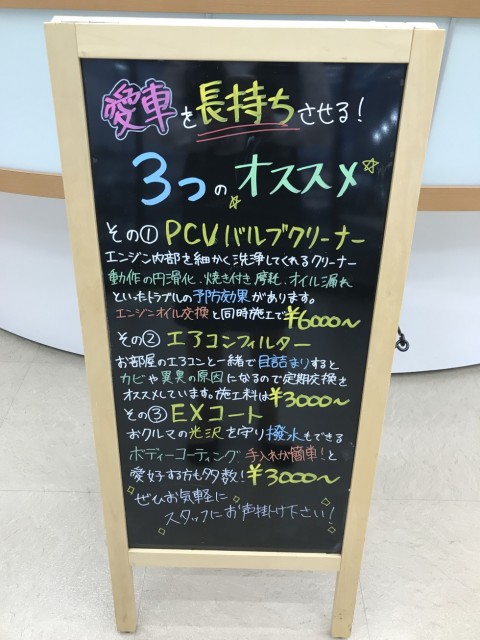 愛車を長持ちさせる！
3つのオススメ
その① PCVバルブクリーナー
エンジン内部を細かく洗浄してくれるクリーナー
動作の円滑化、焼き付き摩耗、オイル漏れ
といったトラブルの予防効果があります。
エンジンオイル交換と同時施工で¥6000〜
その② エアコンフィルター
お部屋のエアコンと一緒で目詰まりすると
カビや異臭の原因になるので定期交換を
オススメしています。施工料は¥3000〜
その③ EXコート
おクルマの光沢を守り撥水もできる
ボディーコーティング 手入れが簡単！と
愛好する方も多数！¥3000〜
ぜひお気軽に
スタッフにお声掛け下さい！